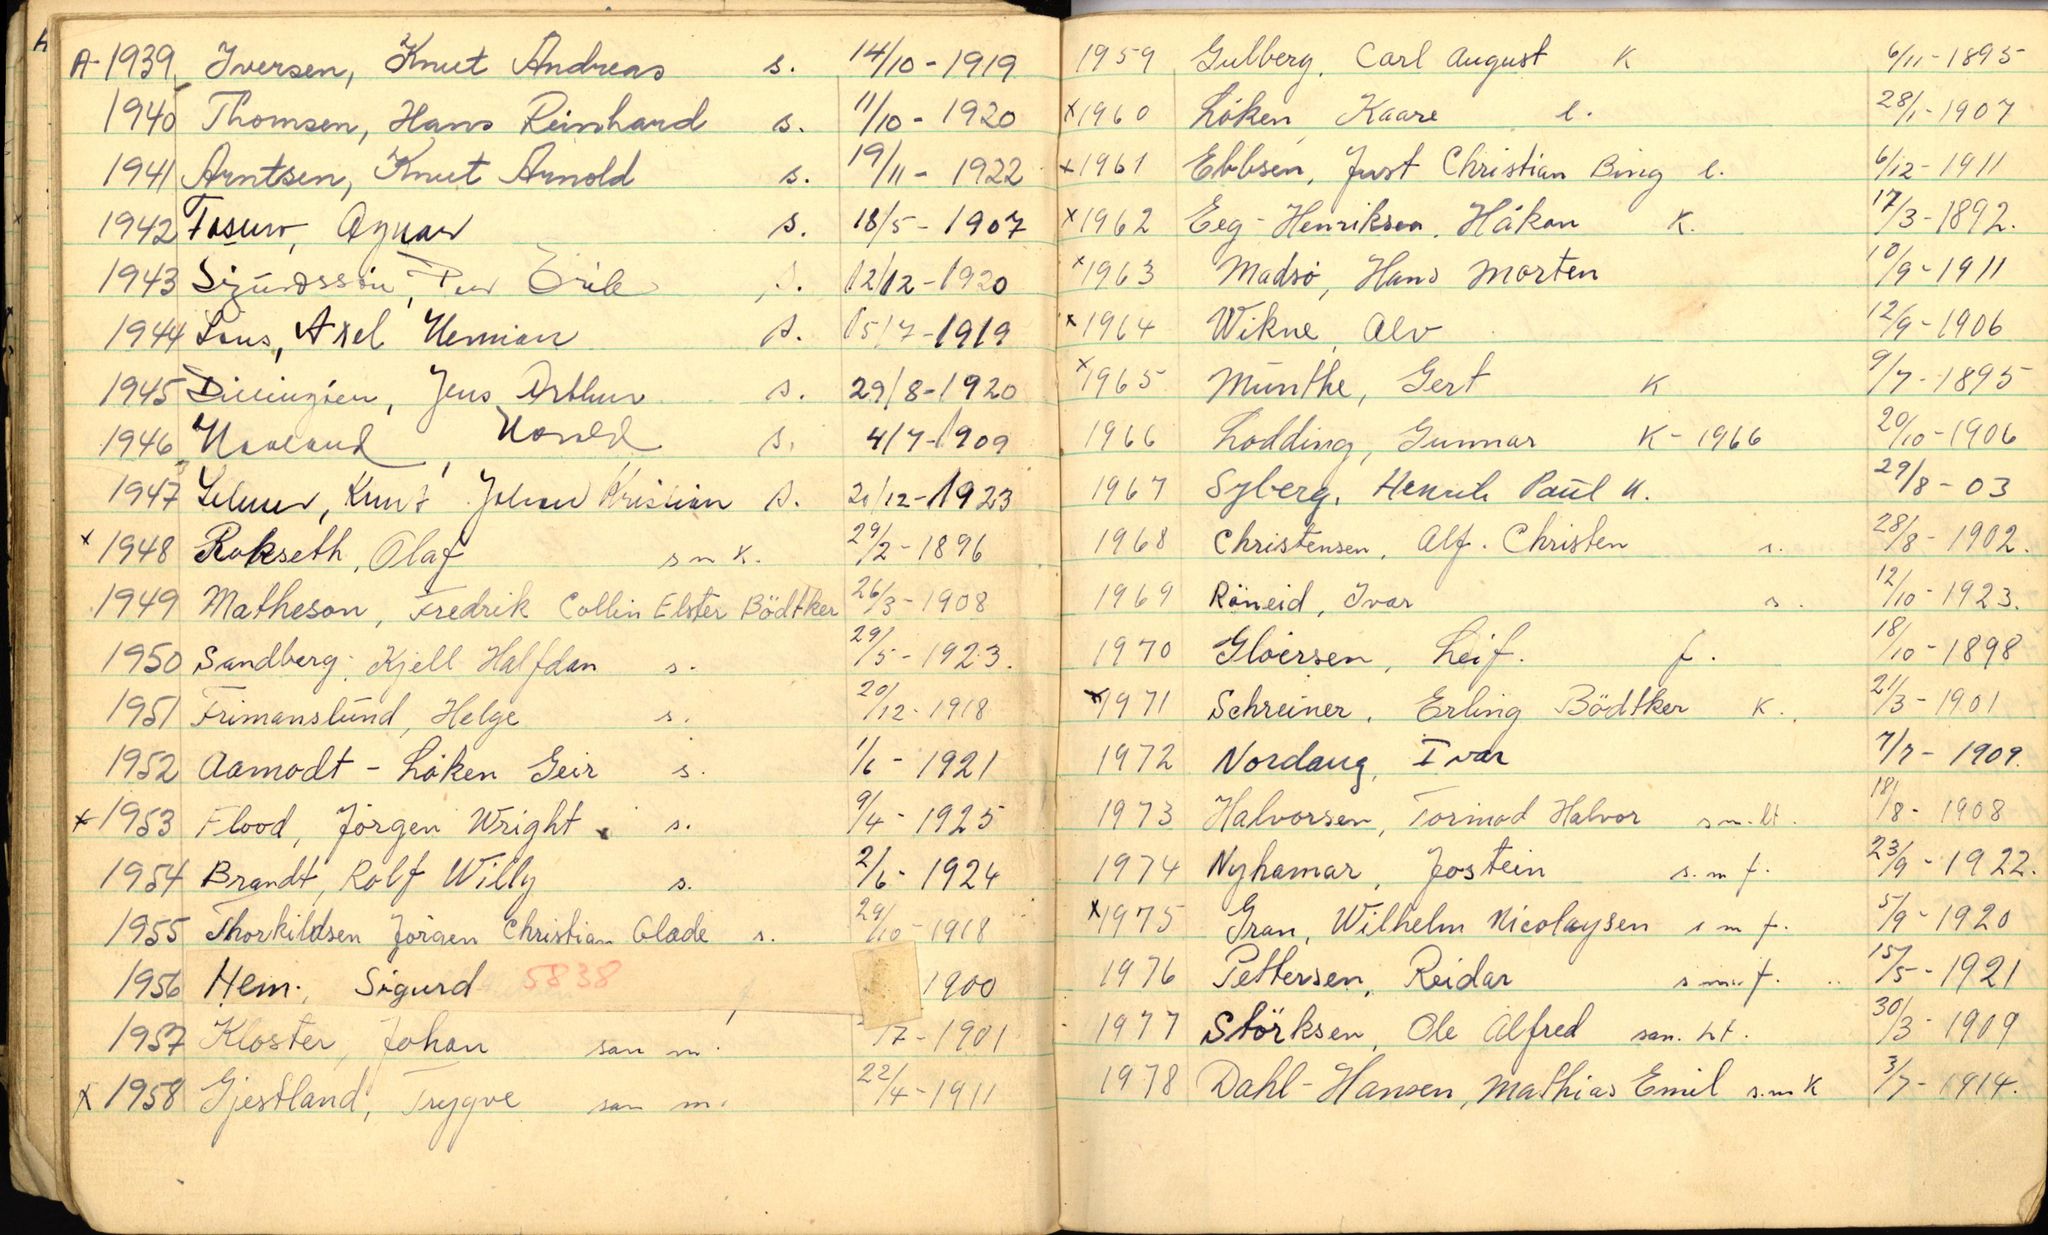 A-1939 Iversen, Knut Andreas s. 14/10-1919
1940 Thomsen, Hans Reinhard s. 11/10-1920
1941 Arntsen, Knut Arnold s. 19/11-1922
1942 s. 18/5-1907
1943 Erik s. 12/12-1920
1944 Axel Herman s. 15/7-1919
1945 Jens Arthur s. 29/8-1920
1946 s. 4/7-1909
1947 Knut Johan Kristian s. 21/12-1923
x 1948 Rokseth, Olaf s m K. 29/2-1896
1949 Matheson, Fredrik Collin Elster Bödtker 26/3-1908
1950 Sandberg, Kjell Halfdan s. 29/5-1923.
1951 Frimanslund, Helge s. 20/12-1918
1952 Aamodt-Löken Geir s. 1/6-1921
x 1953 Flood, Jörgen Wright s. 9/4-1925
1954 Brandt, Rolf Willy s. 2/6-1924
1955 Thorkildsen Jörgen Christian Glade s. 29/10-1918
1956 Hem, Sigurd 5838 1900
1957 Kloster, Johan san m. /7-1901
x 1958 Gjestland, Trygve san m. 22/4-1911
1959 Gulberg, Carl August K 6/11-1895
x1960 Löken, Kaare l. 28/1-1907
x1961 Ebbsen, Just Christian Bing l. 6/12-1911
x1962 Eeg-Henriksen, Håkon K. 17/3-1892.
x1963 Madsö, Hans Morten 10/9-1911
x1964 Wikne, Alv 12/9-1906
x1965 Munthe, Gert K 9/7-1895
1966 Lodding, Gunnar K-1966 20/10-1906
1967 Syberg, Henrik Paul K. 29/8-03
1968 Christensen, Alf. Christen s. 28/8-1902.
1969 Röneid, Ivar s. 12/10-1923.
1970 Glöersen, Leif. f. 18/10-1898
x1971 Schreiner, Erling Bödtker K. 21/3-1901
1972 Nordaug, Ivar 7/7-1909.
1973 Halvorsen, Tormod Halvor s m. lt. 18/8-1908
1974 Nyhamar, Jostein s. m f. 23/9-1922.
x1975 Gran, Wilhelm Nicolaysen s m f. 5/9-1920
1976 Pettersen, Reidar s m. f. 15/5-1921
1977 Störksen, Ole Alfred san. lt. 30/3-1909
1978 Dahl-Hansen, Mathias Emil s.m K 3/7-1914.